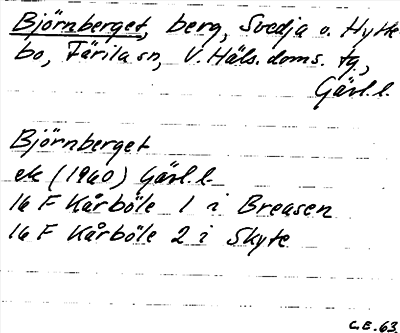 Björnberget, berg, Svedja o. Hytte
bo, Färila sn, V. Häls. doms. tg,
Gävl. l.
Björnberget
ek (1960) Gävl. l.
16 F Kårböle 1 i Breasen
16 F Kårböle 2 i Skyte
C.E. 63.